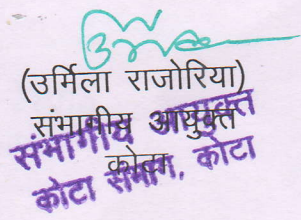 (उर्मिला राजोरिया)
संभागीय आयुक्त
कोटा
संभागीय आयुक्त
कोटा संभाग, कोटा